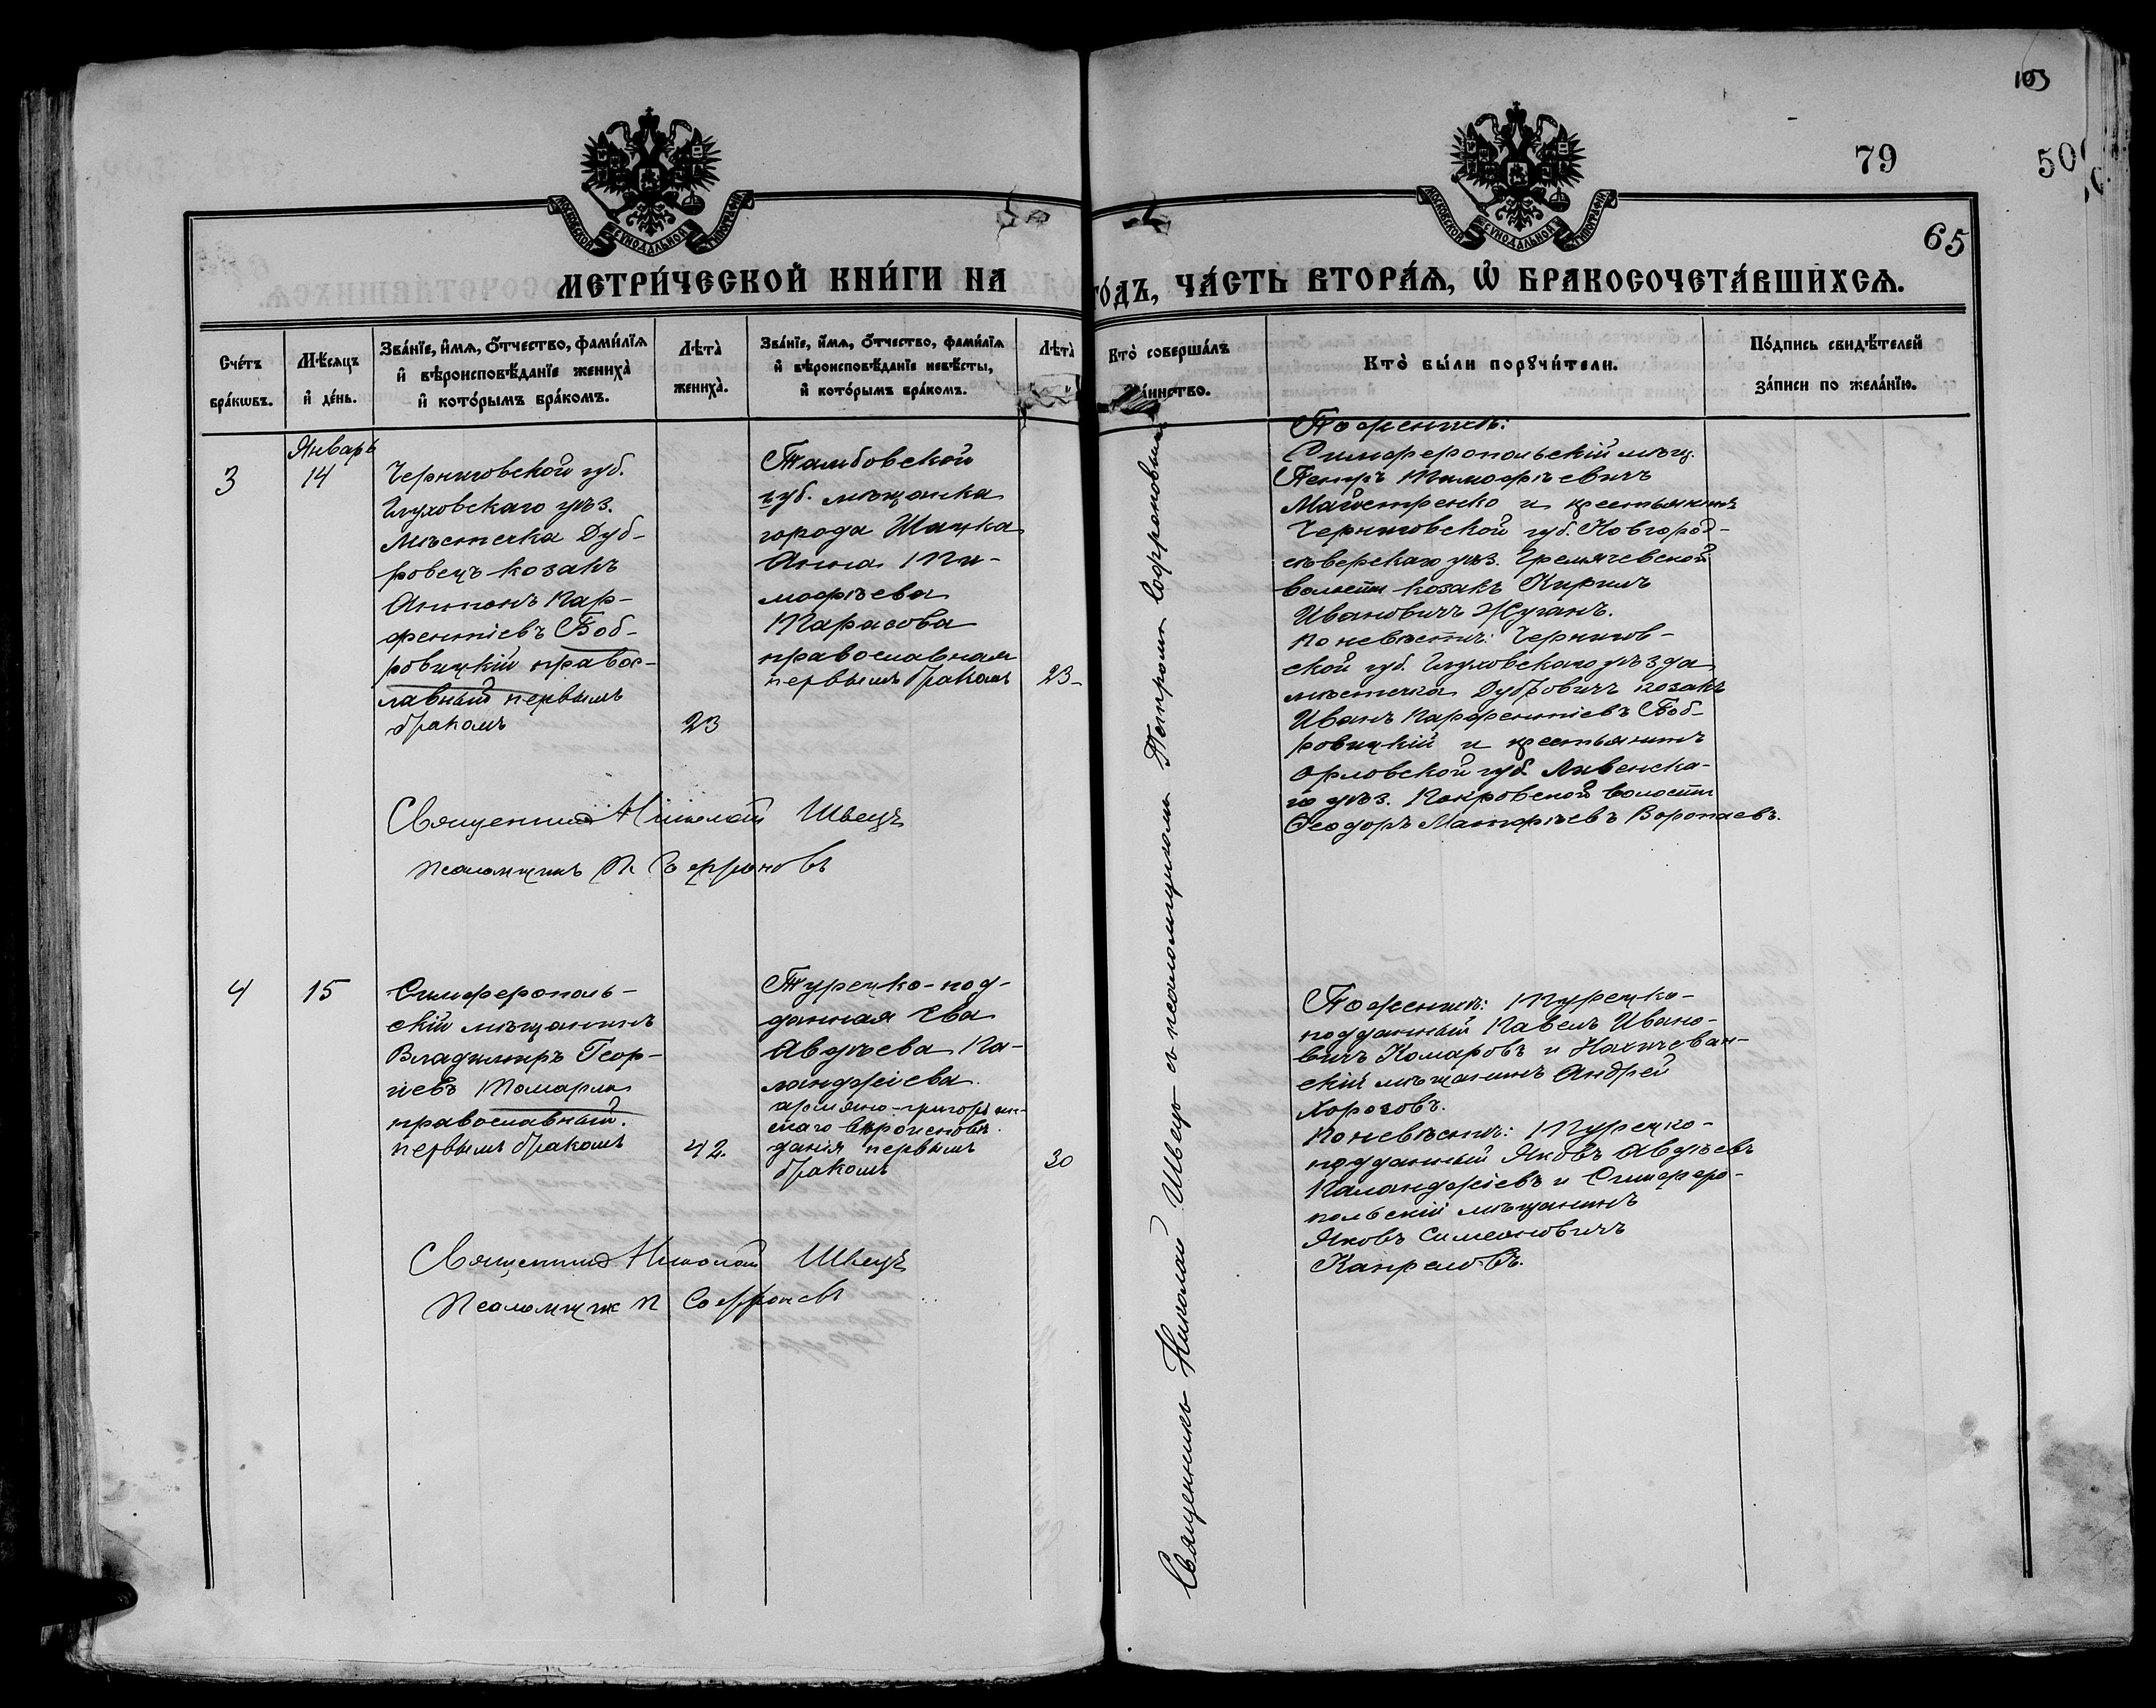 103
79
50
65
МОСКОВСКОЙ СѴНОДАЛЬНОЙ ТИПОГРАФІИ
МОСКОВСКОЙ СѴНОДАЛЬНОЙ ТИПОГРАФІИ
МЕТРИ́ЧЕСКОЙ КНИ́ГИ НА
ГО́ДЪ, ЧА́СТЬ ВТОРА́Ѧ, Ѡ БРАКОСОЧЕТА́ВШИХСѦ.
Сче́тъ бра́кѡвъ.
Мѣ́сѧцъ и де́нь.
Зва́нїе, и́мѧ, ѻ́тчество, фами́лїѧ
и вѣроисповѣ́данїе жениха̀
и кото́рымъ бра́комъ.
Лѣта̀ жениха̀.
Зва́нїе, и́мѧ, ѻ́тчество, фами́лїѧ
и вѣроисповѣ́данїе невѣ́сты,
и кото́рымъ бра́комъ.
Лѣта̀
Кто̀ соверша́лъ
та́инство.
Кто̀ бы́ли порꙋчи́тели.
По́дпись свидѣ́телей
за́писи по жела́нїю.
3
Январь
14
Черниговской губ.
Глуховскаго уѣз.
Мѣстечка Дуб-
ровецъ козакъ
Антонъ Пар-
фентіевъ Боб-
ровицкій правос-
лавный первымъ
бракомъ
23
Тамбовской
губ. мѣщанка
города Шацка
Анна Ти-
мофѣева
Тарасова
православная
первымъ бракомъ
23
Священникъ Николай Швецъ с псаломщикомъ Петромъ Софроновымъ
По женихѣ:
Симферопольскій мѣщ.
Петръ Тимофѣевичъ
Майстренко и крестьянинъ
Черниговской губ. Новгород-
сѣверскаго уѣз. Гремячевской
волости козакъ Кирилъ
Ивановичъ Жуганъ.
По невѣстѣ: Чернигов-
ской губ. Глуховскаго уѣзда
мѣстечка Дубровичъ козакъ
Иванъ Парфентіевъ Боб-
ровицкій и крестьянинъ
Орловской губ. Ливенска-
го уѣз. Покровской волости
Ѳеодоръ Матфѣевъ Воропаевъ.
Священникъ Николай Швецъ
Псаломщикъ П Софроновъ
4
15
Симферополь-
скій мѣщанинъ
Владимиръ Геор-
гіевъ Томарли
православный.
первымъ бракомъ
42.
Турецко-под-
данная Ева
Авдѣева Ка-
ланджіева.
армяно-григоріан-
скаго вѣроисповѣ-
данія первымъ
бракомъ
30
По женихѣ: Турецко-
подданный Павелъ Ивано-
вичъ Комаровъ и Нахичеван-
скій мѣщанинъ Андрей
Хорозовъ.
По невѣстѣ: Турецко-
подданный Яковъ Авдѣевъ
Каланджіевъ и Симферо-
польскій мѣщанинъ
Яковъ Симеоновичъ
Капреловъ.
Священникъ Николай Швецъ
Псаломщик П Софронов